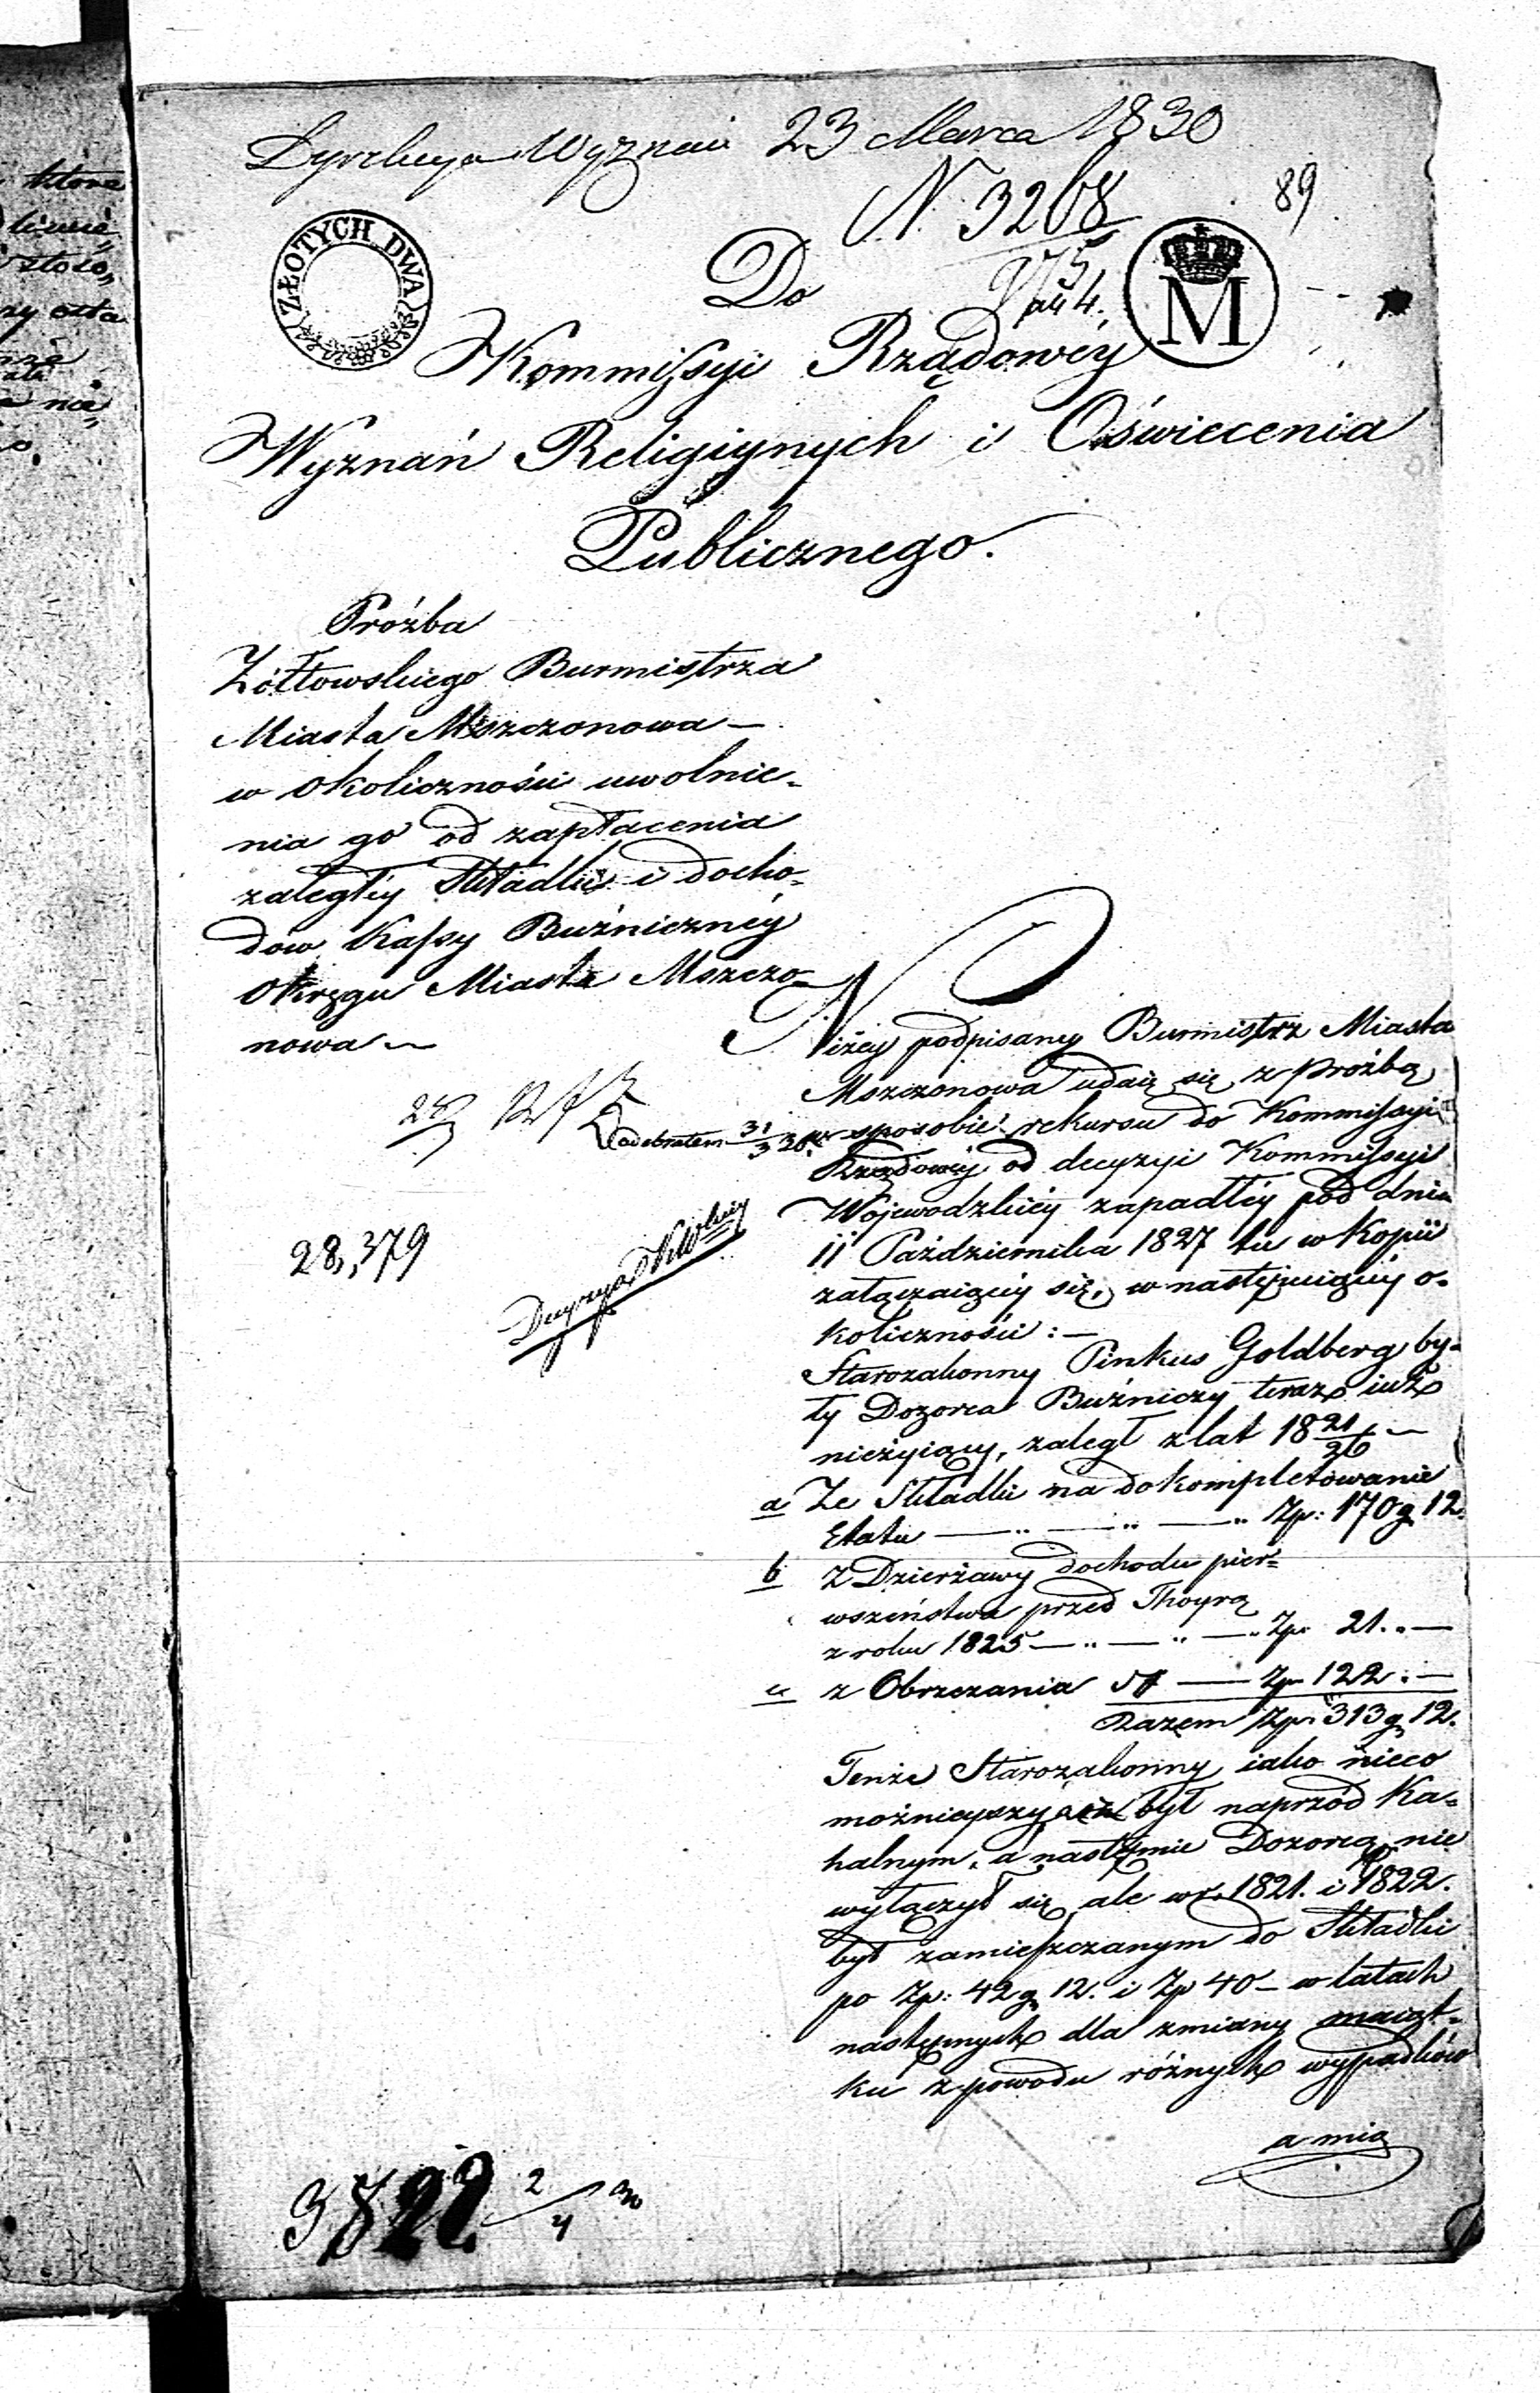 Dyrekcya Wyznań 23 Marca 1830
N. 3268
89
ZŁOTYCH DWA
M
Do
Kommissyi Rządowey
Wyznań Religiynych i Oświecenia
Publicznego.
Próżba
Żółtowskiego Burmistrza
Miasta Mszczonowa —
w okoliczności uwolnie-
nia go od zapłacenia
zaległéy Składki i docho-
dow Kassy Buźnicznéy
Okręgu Miasta Mszczo-
nowa —
odebrałem 31/3 30.
28,379
Decyzya KW
3822 2/4 30
Niżey podpisany Burmistrz Miasta
Mszczonowa udaię się z proźbą
w sposobie rekursu do Kommissyi
Rządowéy od decyzyi Kommissyi
Wojewodzkiéy zapadłéy pod dniem
11 Października 1827 tu w Kopii
załączaiącéy się, w następuiącéy o-
koliczności: —
Starozakonny Pinkus Goldberg by-
ły Dozorca Buźniczy teraz iuż
nieżyiący, zaległ z lat 1821/26 —
a Ze Składki na dokompletowanie
Etatu — „ — „ — „ Zp: 170 g 12.
b Z Dzierżawy dochodu pier-
wszeństwa przed Thoyrą
z roku 1825 — „ — „ — „ Zp. 21. „ —
c z Obrzezania — Zp 122 „ —
Razem Zp. 313 g 12.
Tenże Starozakonny iako nieco
możnieyszy był naprzód Ka-
halnym, a następnie Dozorcą, nie
wyłączył się ale w r. 1821. i 1822.
był zamieszczanym do Składki
po Zp: 42 g 12. i Zp 40 — w latach
następnych dla zmiany maiąt-
ku z powodu różnych wypadków
a mia